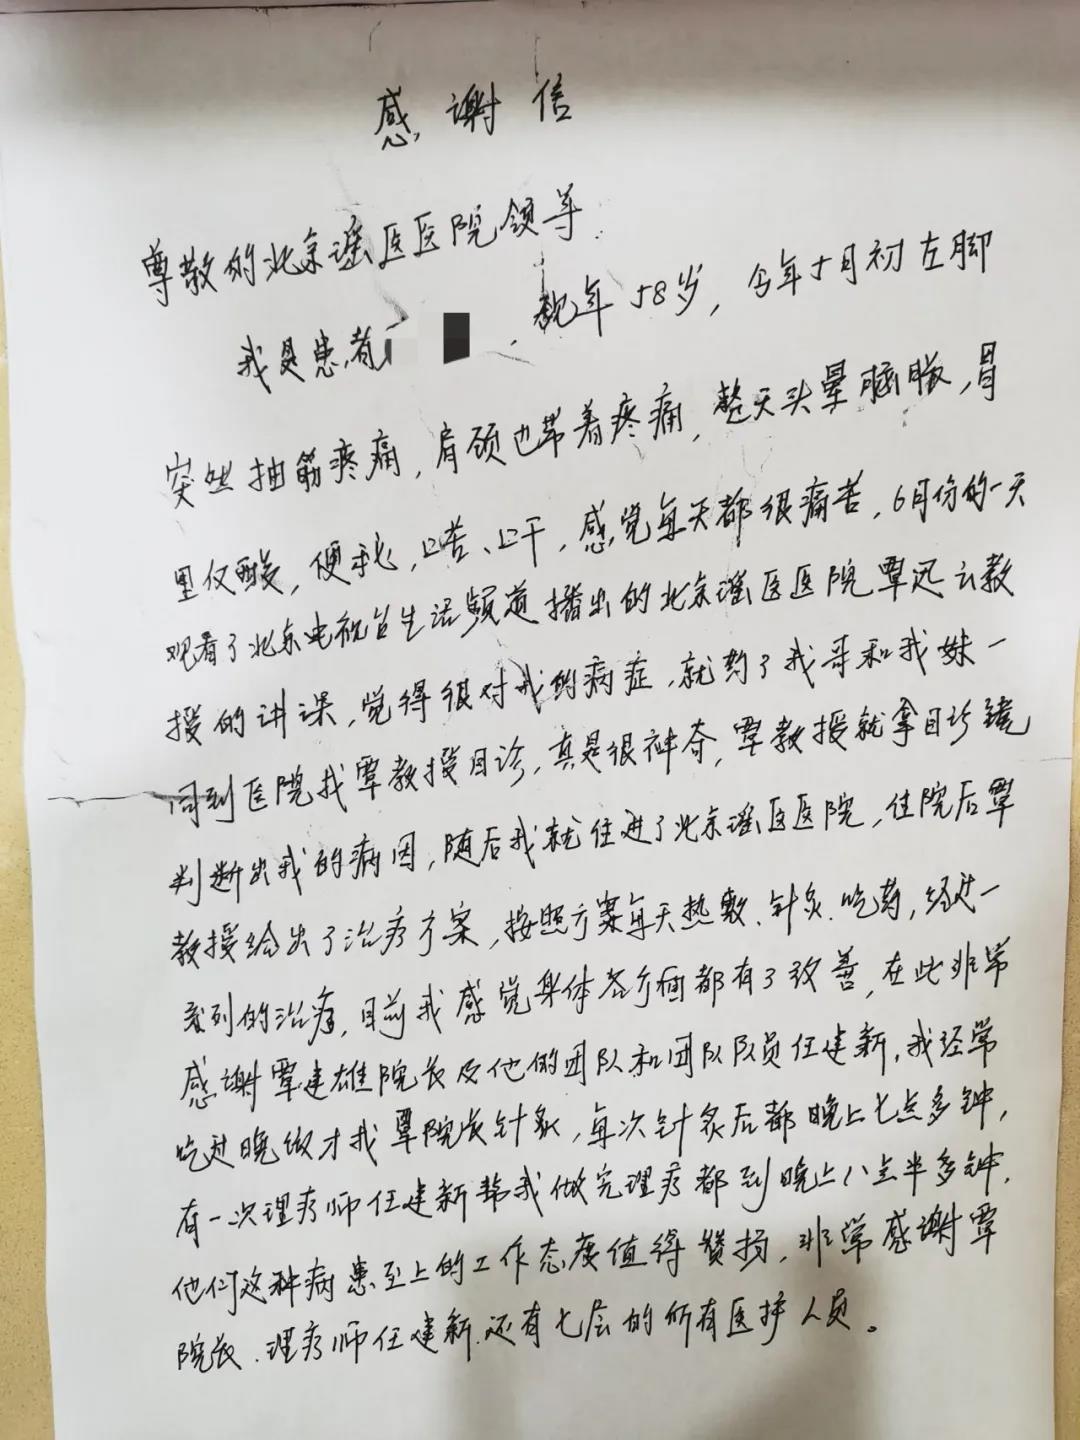 感谢信
尊敬的北京瑶医医院领导
我是患者 ,现年58岁,今年5月初左脚
突然抽筋疼痛,肩颈也带着疼痛,整天头晕脑胀,胃
里仅酸,便秘,口苦、口干,感觉每天都很痛苦,6月份的一天
观看了北京电视台生活频道播出的北京瑶医医院覃迅云教
授的讲课,觉得很对我的病症,就约了我哥和我妹一
同到医院找覃教授目诊,真是很神奇,覃教授就拿目诊镜
判断出我的病因,随后我就住进了北京瑶医医院,住院后覃
教授给出了治疗方案,按照方案每天热敷、针灸、吃药,经过一
系列的治疗,目前我感觉身体各方面都有了改善,在此非常
感谢覃建雄院长及他的团队和团队队员任建新,我经常
吃过晚饭才找覃院长针灸,每次针灸后都晚上七点多钟,
有一次理疗师任建新帮我做完理疗都到晚上八点半多钟,
他们这种病患至上的工作态度值得赞扬,非常感谢覃
院长、理疗师任建新、还有七层的所有医护人员。